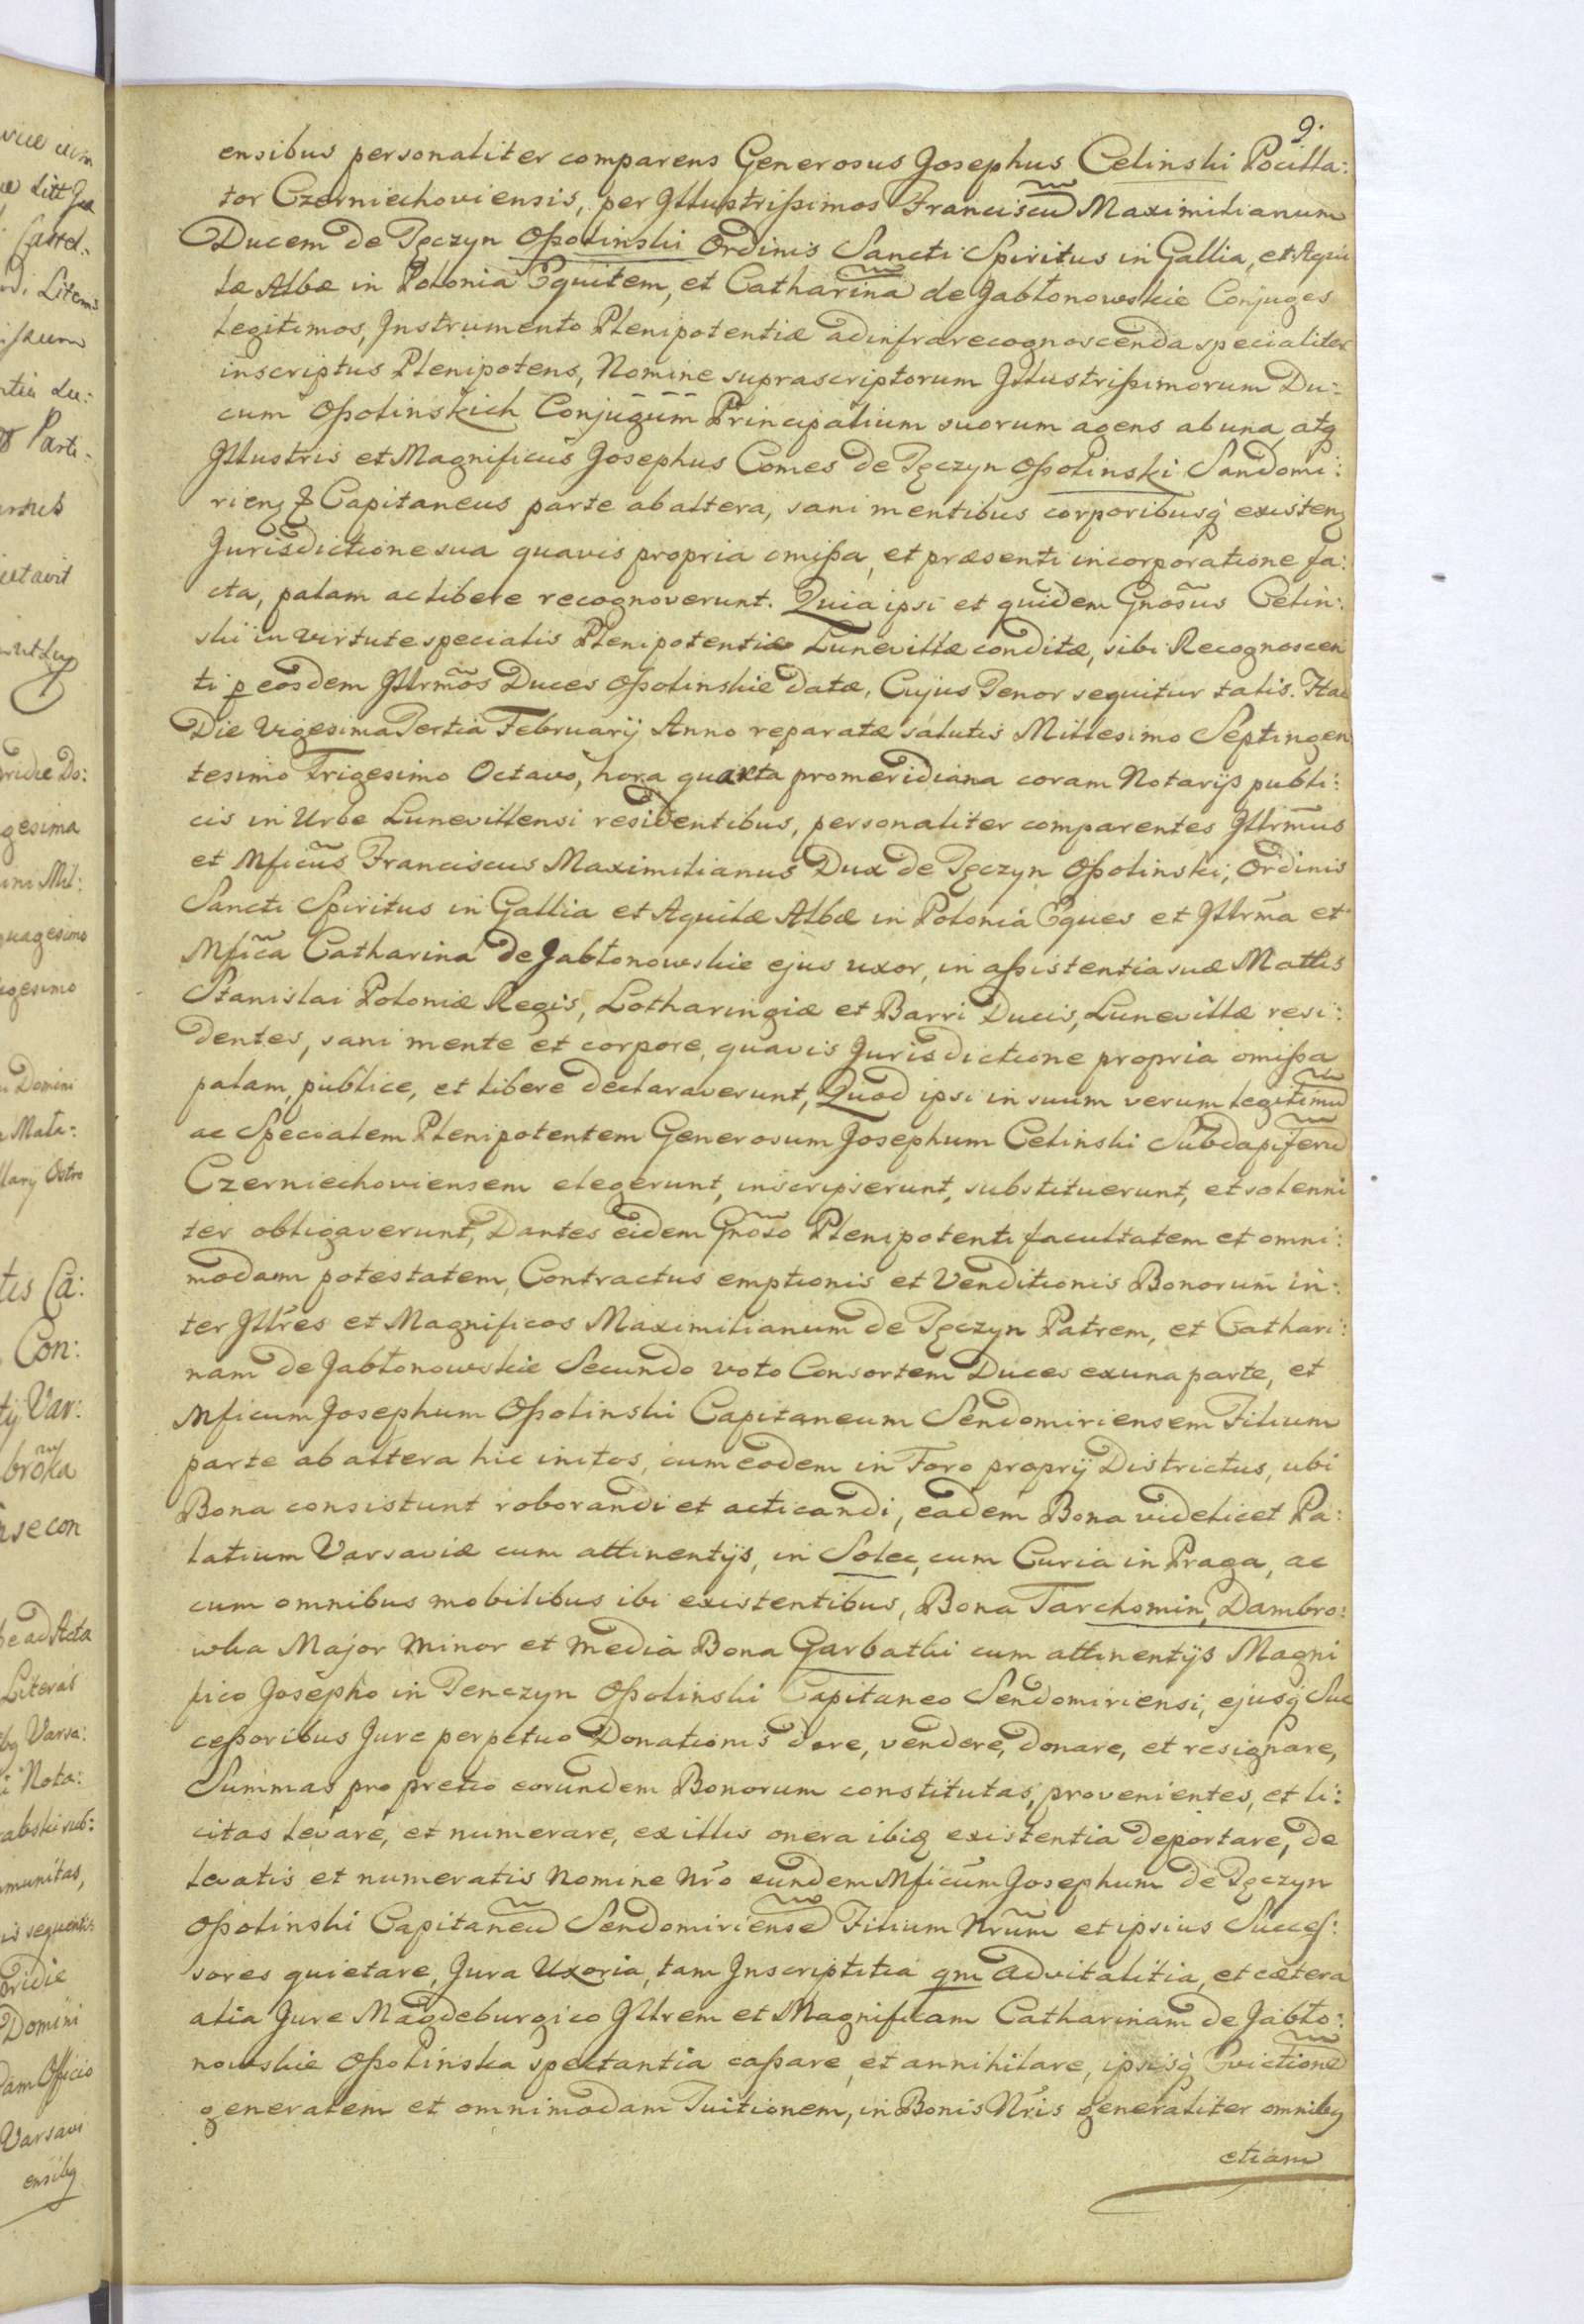 9.
ensibus personaliter comparens Generosus Josephus Celinski Pocilla:
tor Czerniechoviensis, per Illustrißimos Franciscũ Maximilianum
Ducem de Tęczyn Oßolinski Ordinis Sancti Spiritus in Gallia, et Aqui
læ Albæ in Polonia Equitem, et Catharina de Jabłonowskie Conjuges
legitimos, Instrumento Plenipotentiæ ad infra recognoscenda specialiter
inscriptus Plenipotens, Nomine suprascriptorum Illustrißimorum Du:
cum Oßolinskich Conjugum Principalium suorum agens ab una, atq
Illustris et Magnificus Josephus Comes de Tęczyn Oßolinski Sandomi:
rien Capitaneus parte ab altera, sani mentibus corporibusq existen
Jurisdictione sua quavis propria omißa, et præsenti incorporatione fa:
cta, palam ac libere recognoverunt. Quia ipsi et quidem Gnõsus Celin:
ski in virtute specialis Plenipotentiæ Lunevillæ conditæ, sibi Recognoscen
ti p eosdem Illrmõs Duces Oßolinskie datæ, Cujus Tenor sequitur talis.
Die Vigesima Tertia Februarij Anno reparatæ salutis Millesimo Septingen
tesimo Trigesimo Octavo, hora quarta promeridiana coram Notarijs publi:
cis in Urbe Lunevillensi residentibus, personaliter comparentes Illrmũs
et Mficũs Franciscus Maximilianus Dux de Tęczyn Oßolinski, Ordinis
Sancti Spiritus in Gallia et Aquilæ Albæ in Polonia Eques et Illrma et
Mfica Catharina de Jabłonowskie ejus uxor, in aßistentia suæ Mattis
Stanislai Poloniæ Regis, Lotharingiæ et Barri Ducis, Lunevillæ resi:
dentes, sani mente et corpore, quavis Jurisdictione propria omißa
palam, publice, et libere declaraverunt, Quod ipsi in suum verum legitimũ
ac Specialem Plenipotentem Generosum Josephum Celinski Subdapiferũ
Czerniechoviensem elegerunt, inscripserunt, substituerunt, et solenni
ter obligaverunt, Dantes eidem Gnõso Plenipotenti facultatem et omni:
modam potestatem, Contractus emptionis et Venditionis Bonorum in:
ter Illres et Magnificos Maximilianum de Tęczyn Patrem, et Cathari:
nam de Jabłonowskie Secundo voto Consortem Duces ex una parte, et
Mficum Josephum Oßolinski Capitaneum Sendomiriensem Filium
parte ab altera hic initos, cum eodem in Foro proprij Districtus, ubi
Bona consistunt roborandi et acticandi, eadem Bona videlicet Pa:
latium Varsaviæ cum attinentijs, in Solec, cum Curia in Praga, ac
cum omnibus mobilibus ibi existentibus, Bona Tarchomin, Dambro:
wka Major Minor et Media Bona Garbatki cum attinentijs Magni
fico Josepho in Tenczyn Oßolinski Capitaneo Sendomiriensi, ejusq Suc
ceßoribus Jure perpetuo Donationis dare, vendere, donare, et resignare,
Summas pro pretio eorundem Bonorum constitutas, provenientes, et li:
citas levare, et numerare, ex illis onera ibiq existentia deportare, de
levatis et numeratis Nomine Nrõ eundem Mficum Josephum de Tęczyn
Oßolinski Capitaneũ Sendomiriensẽ Filium Nrũm et ipsius Succeß:
sores quietare, Jura Uxoria, tam Inscriptitia qm advitalitia, et cætera
alia Jure Magdeburgico Illrem et Magnificam Catharinam de Jabło:
nowskie Oßolinska spectantia caßare, et annihilare, ipsisq Evictionẽ
generalem et omnimodam Tuitionem, in Bonis Nris generaliter omnibq
etiam